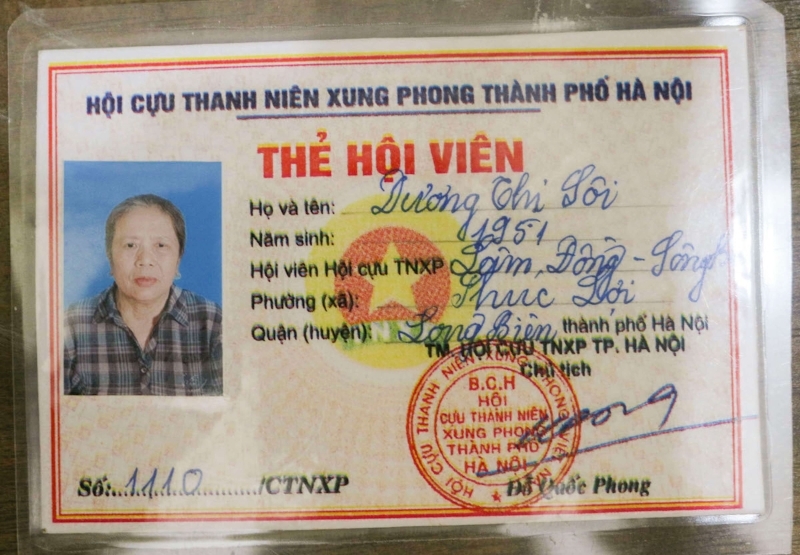 HỘI CỰU THANH NIÊN XUNG PHONG THÀNH PHỐ HÀ NỘI
THẺ HỘI VIÊN
Họ và tên: Dương Thị Sôi
Năm sinh: 1951
Hội viên Hội cựu TNXP
Phường (xã): Phúc Lợi
Quận (huyện): Long Biên thành phố Hà Nội
TM. HỘI CỰU TNXP TP. HÀ NỘI
Chủ tịch
HỘI CỰU THANH NIÊN XUNG PHONG VIỆT NAM
B.C.H
HỘI
CỰU THANH NIÊN
XUNG PHONG
THÀNH PHỐ
HÀ NỘI
Số: 1110 /CTNXP
Đỗ Quốc Phong